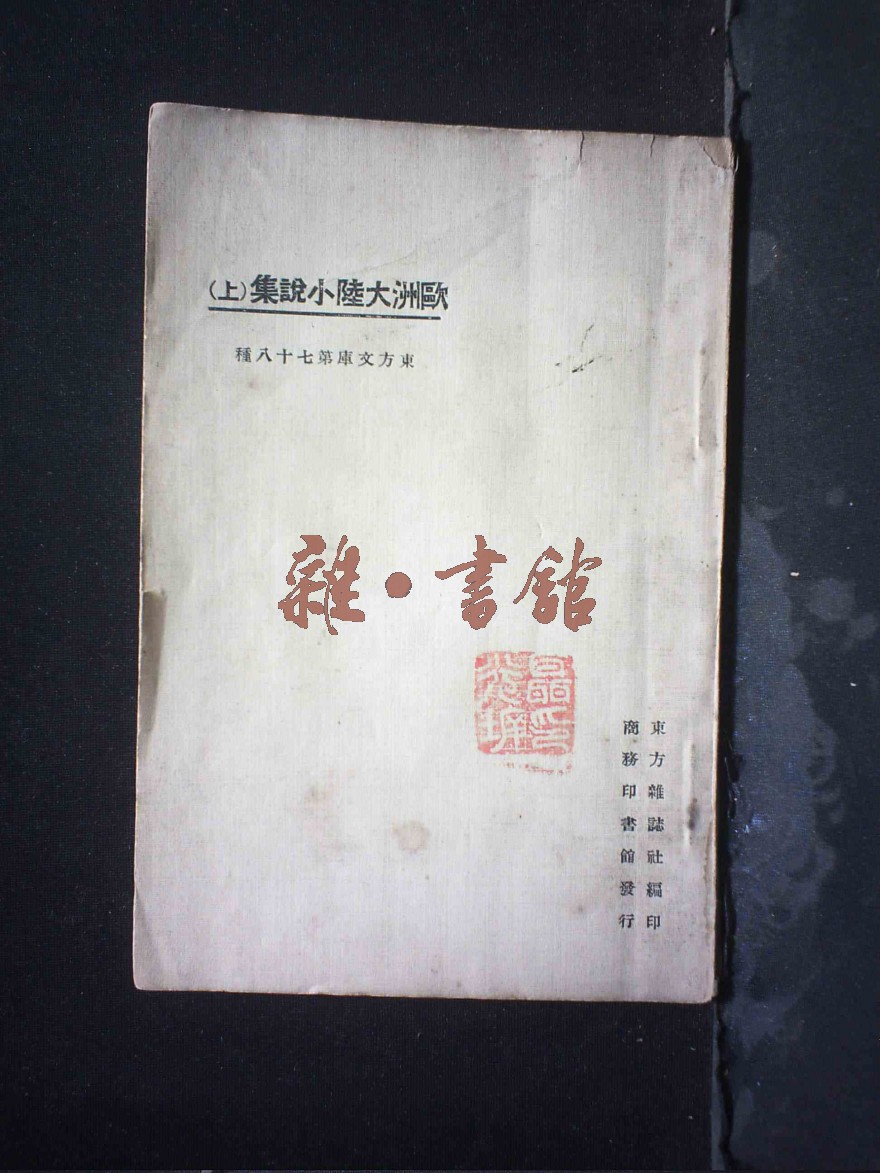 歐洲大陸小說集(上)
東方文庫第七十八種
雜·書館
東方雜誌社編印
商務印書館發行